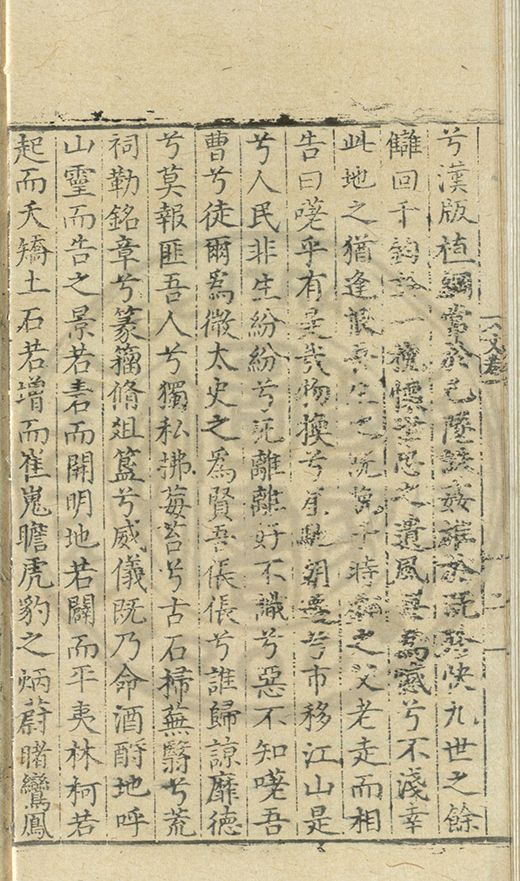 兮漢版植綱常於已墜誅姦雄於既孽快九世之餘
讎回千鈞於一櫝懷世忠之遺風異為感兮不淺幸
此地之猶逢恨吾生之晩時之父老走而相
告曰嗟乎有是哉物換兮星馳朝兮市移江山是
兮人民非生紛紛兮死離離好不識兮惡不知嗟吾
曹兮徒爾為微太史之為賢吾倀倀兮誰歸諒靡德
兮莫報匪吾人兮獨私拂莓苔兮古石掃蕪翳兮荒
祠勒銘章兮篆籀脩俎簋兮威儀既乃命酒酹地呼
山靈而告之景若君而開明地若闢而平夷林柯若
起而夭矯土石若增而崔嵬瞻虎豹之炳蔚睹鸞鳳